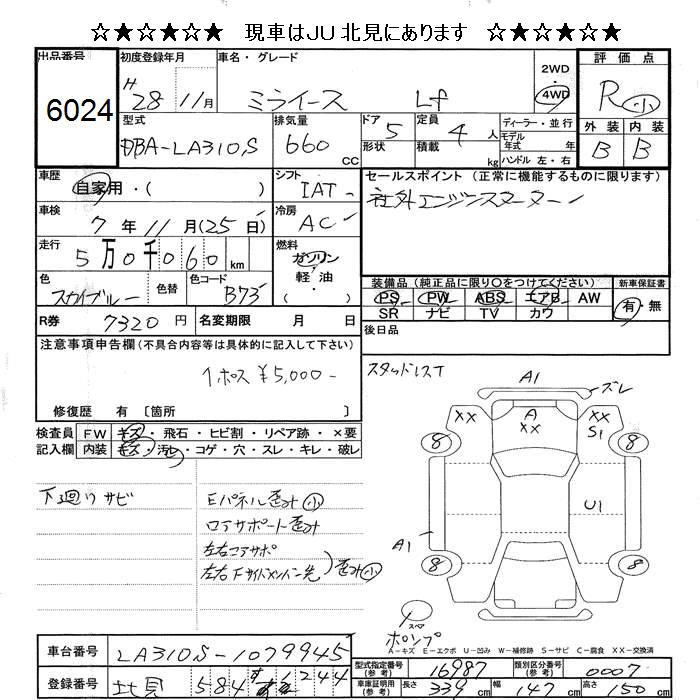 ☆★☆★☆★ 現車はJU北見にあります ☆★☆★☆★
出品番号 初度登録年月 車名・グレード 評価点
6024 H 28 11月 ミライース Lf 2WD 4WD R 小
型式 排気量 ドア 定員 ディーラー・並行 外装 内装
DBA-LA310S 660 CC 5 4 人 モデル年式 年式 B B
形状 積載 kg ハンドル 左・右
車歴 シフト セールスポイント (正常に機能するものに限ります)
自家用・( ) IAT 社外エンジンスターター
車検 冷房
7年11月(25日) AC
走行 燃料
5万0千060km ガソリン・軽油・( )
装備品 (純正品に限り〇をつけてください) 新車保証書
色 色替 色コード PS PW ABS エアB AW 有・無
スカイブルー B73 SR ナビ TV カワ
R券 7320円 名変期限 月 日 後日品
注意事項申告欄(不具合内容等は具体的に記入して下さい)
1ポス ¥5,000-
修復歴 有 〔箇所 〕
検査員 FW キズ・飛石・ヒビ割・リペア跡・×要
記入欄 内装 キズ・汚れ・コゲ・穴・スレ・キレ・破レ
スタッドレスT
A1 ズレ
XX A XX XX S1
8 8
U1
A1
8 8
スペア
ポンプ
下廻りサビ
Eパネル歪み 小
ロアサポート歪み
左右コアサポ
左右Fサイドメンバー先 歪み 小
A-キズ E-エクボ U-凹み W-補修跡 S-サビ C-腐食 XX-交換済
車台番号 LA310S-1079945
型式指定番号(参考) 16987 類別区分番号(参考) 0007
登録番号 北見 584 1244
車庫証明用(参考) 長さ 339 cm 幅 147 cm 高さ 150 cm